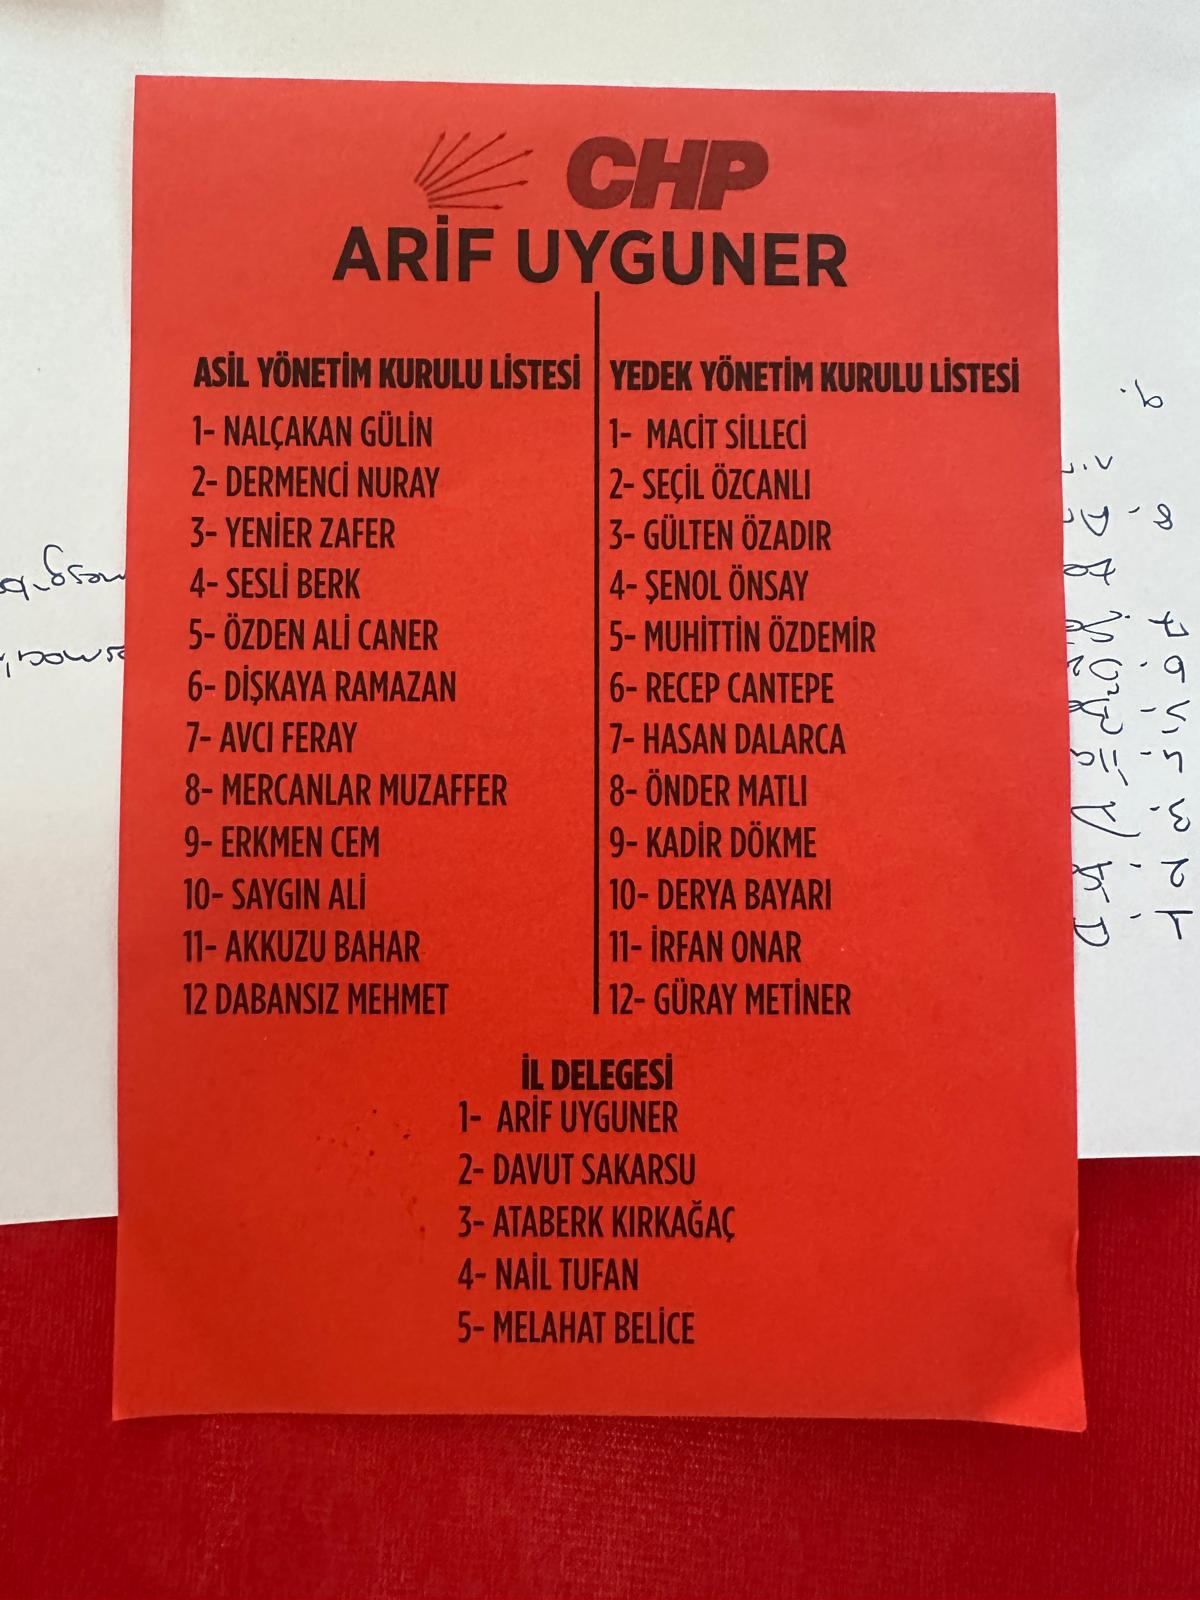 CHP
ARİF UYGUNER
ASİL YÖNETİM KURULU LİSTESİ
1- NALÇAKAN GÜLİN
2- DERMENCİ NURAY
3- YENİER ZAFER
4- SESLİ BERK
5- ÖZDEN ALİ CANER
6- DİŞKAYA RAMAZAN
7- AVCI FERAY
8- MERCANLAR MUZAFFER
9- ERKMEN CEM
10- SAYGIN ALİ
11- AKKUZU BAHAR
12 DABANSIZ MEHMET
YEDEK YÖNETİM KURULU LİSTESİ
1- MACİT SİLLECİ
2- SEÇİL ÖZCANLI
3- GÜLTEN ÖZADIR
4- ŞENOL ÖNSAY
5- MUHİTTİN ÖZDEMİR
6- RECEP CANTEPE
7- HASAN DALARCA
8- ÖNDER MATLI
9- KADİR DÖKME
10- DERYA BAYARI
11- İRFAN ONAR
12- GÜRAY METİNER
İL DELEGESİ
1- ARİF UYGUNER
2- DAVUT SAKARSU
3- ATABERK KIRKAĞAÇ
4- NAİL TUFAN
5- MELAHAT BELİCE